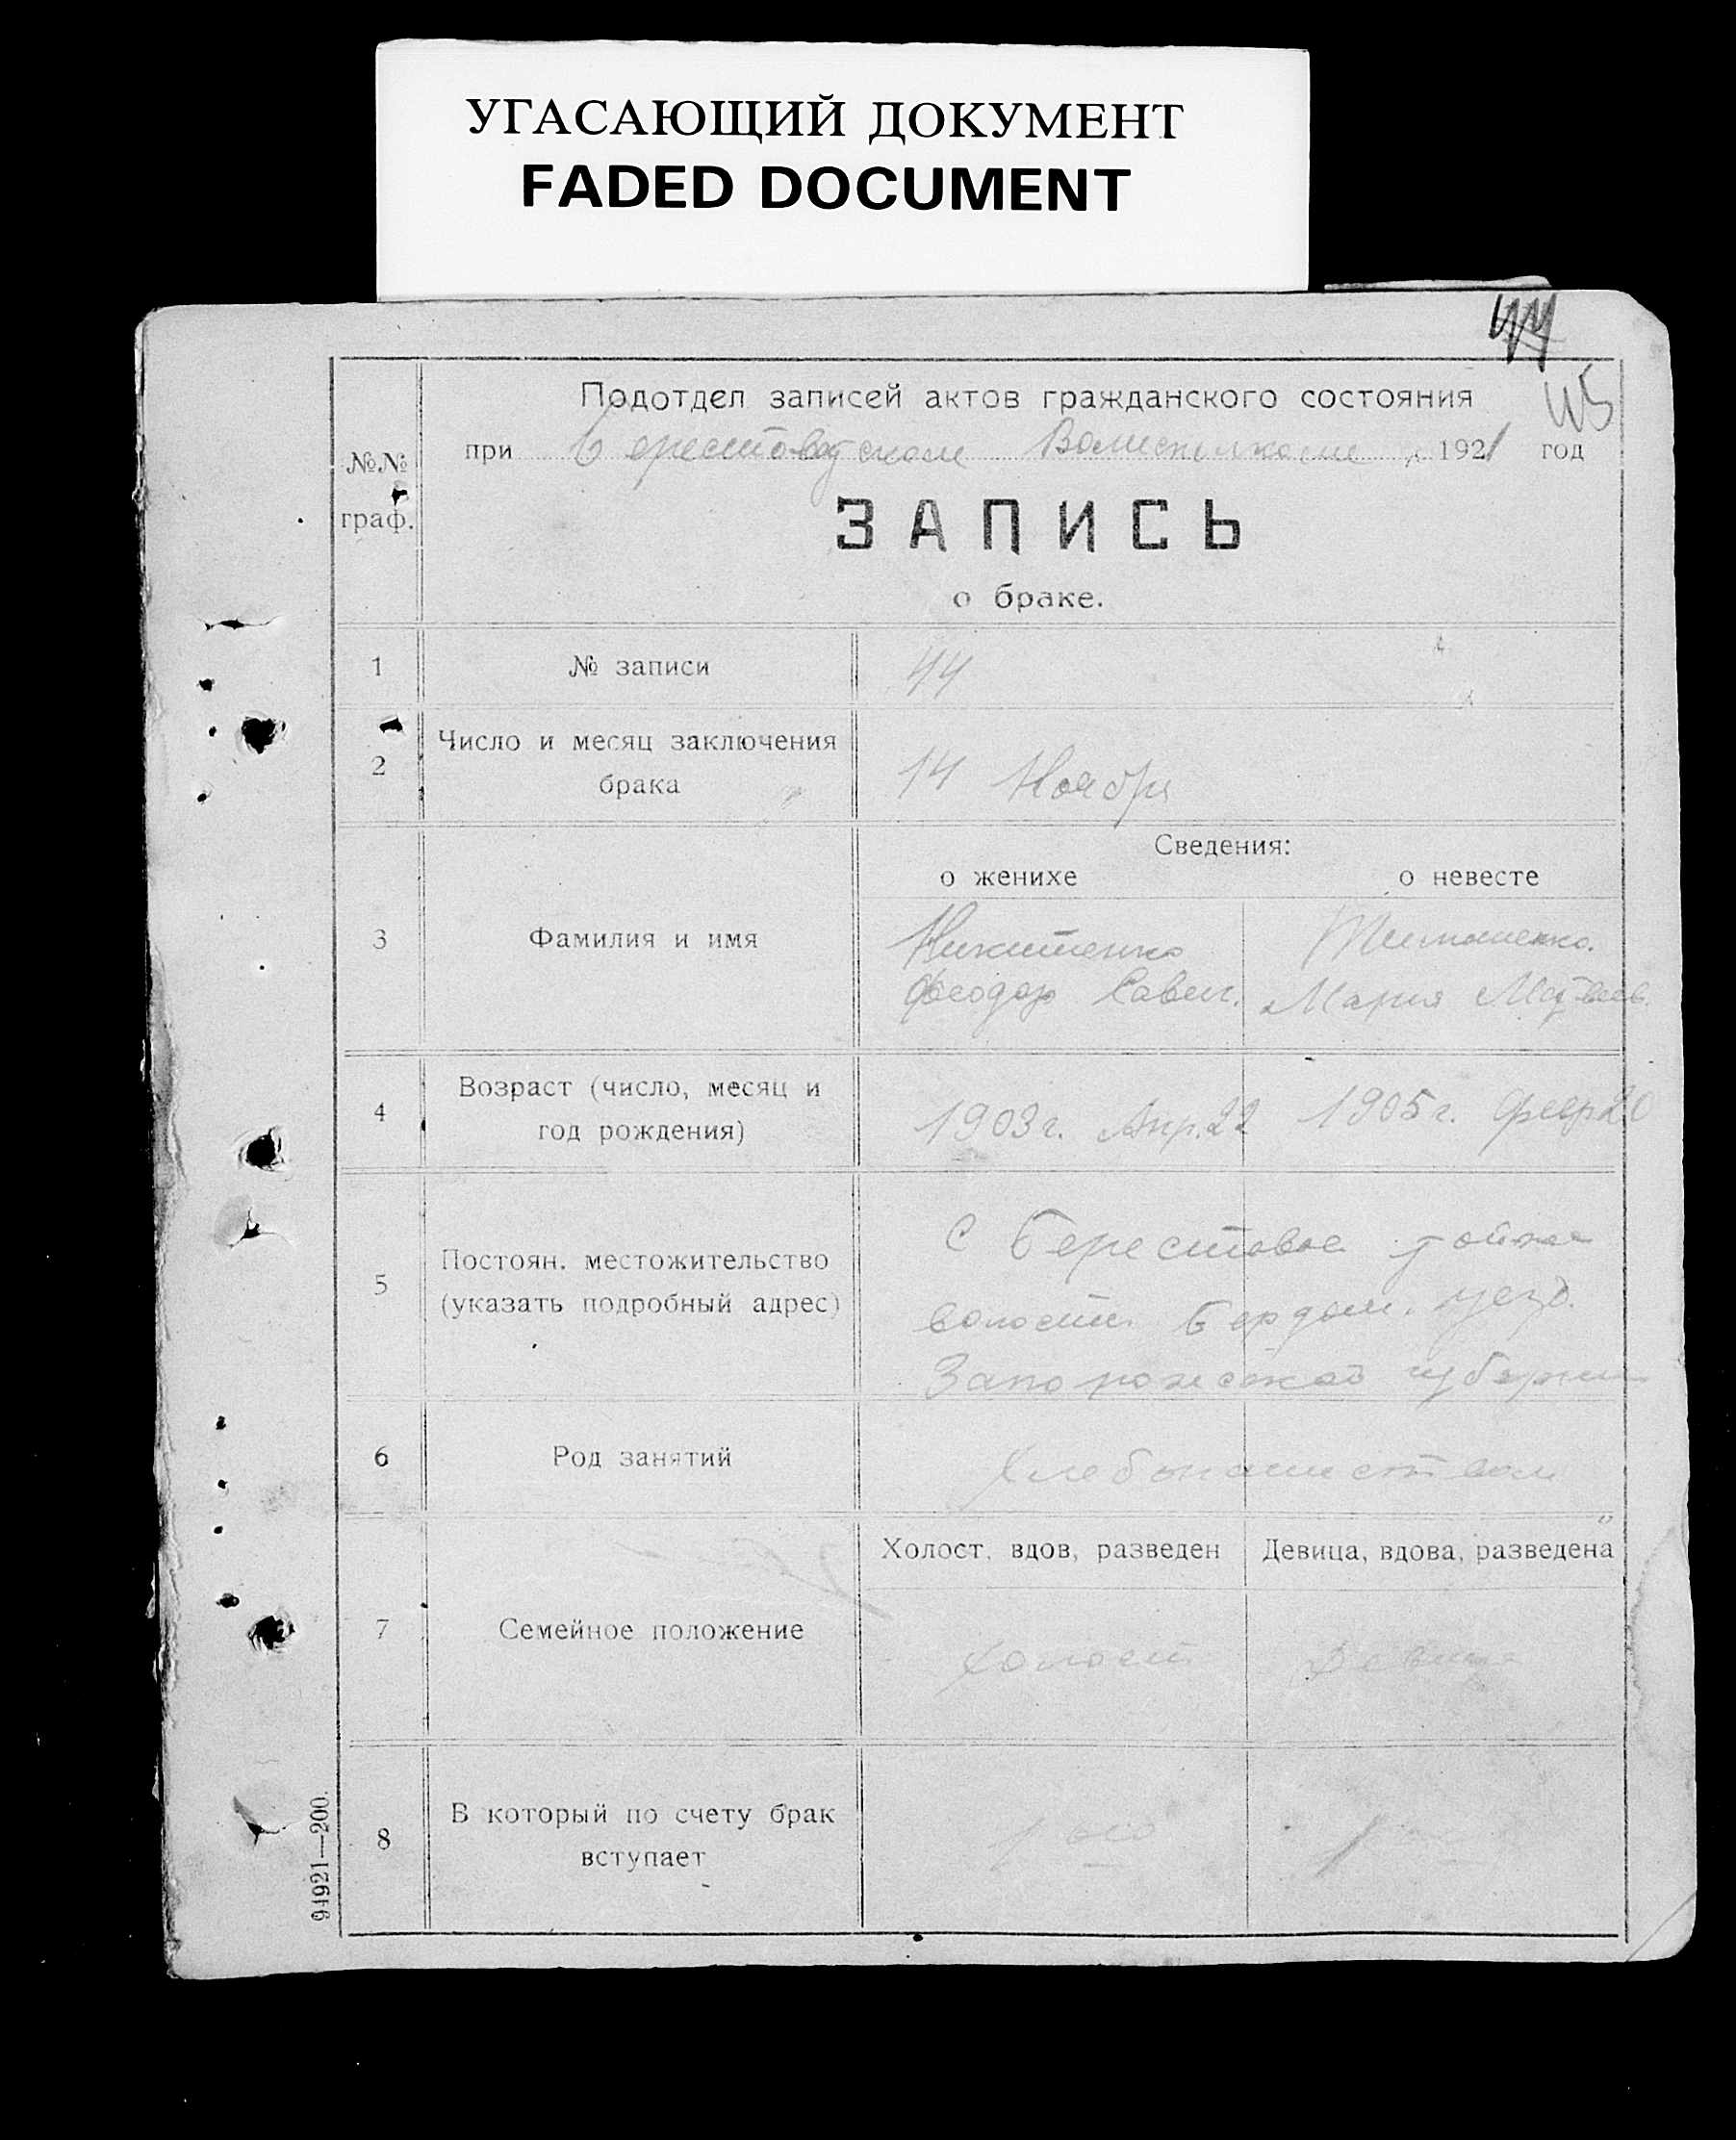 УГАСАЮЩИЙ ДОКУМЕНТ
FADED DOCUMENT
44
45
Подотдел записей актов гражданского состояния
№№ граф.
при Берестоватском Волисполкоме 1921 год
ЗАПИСЬ
о браке.
1 № записи 44
2 Число и месяц заключения брака 14 Ноября
Сведения:
о женихе о невесте
3 Фамилия и имя
Никитенко Тимошенко.
Феодор Савич. Мария Матвеев.
4 Возраст (число, месяц и год рождения)
1903 г. Апр. 22 1905 г. Февр 20
5 Постоян. местожительство (указать подробный адрес)
С Берестовое тойже
волости Бердян. уезд.
Запорожской губернии
6 Род занятий Хлебопашеством
Холост, вдов, разведен Девица, вдова, разведена
7 Семейное положение
холост Девица
8 В который по счету брак вступает
1 1
94921—200.